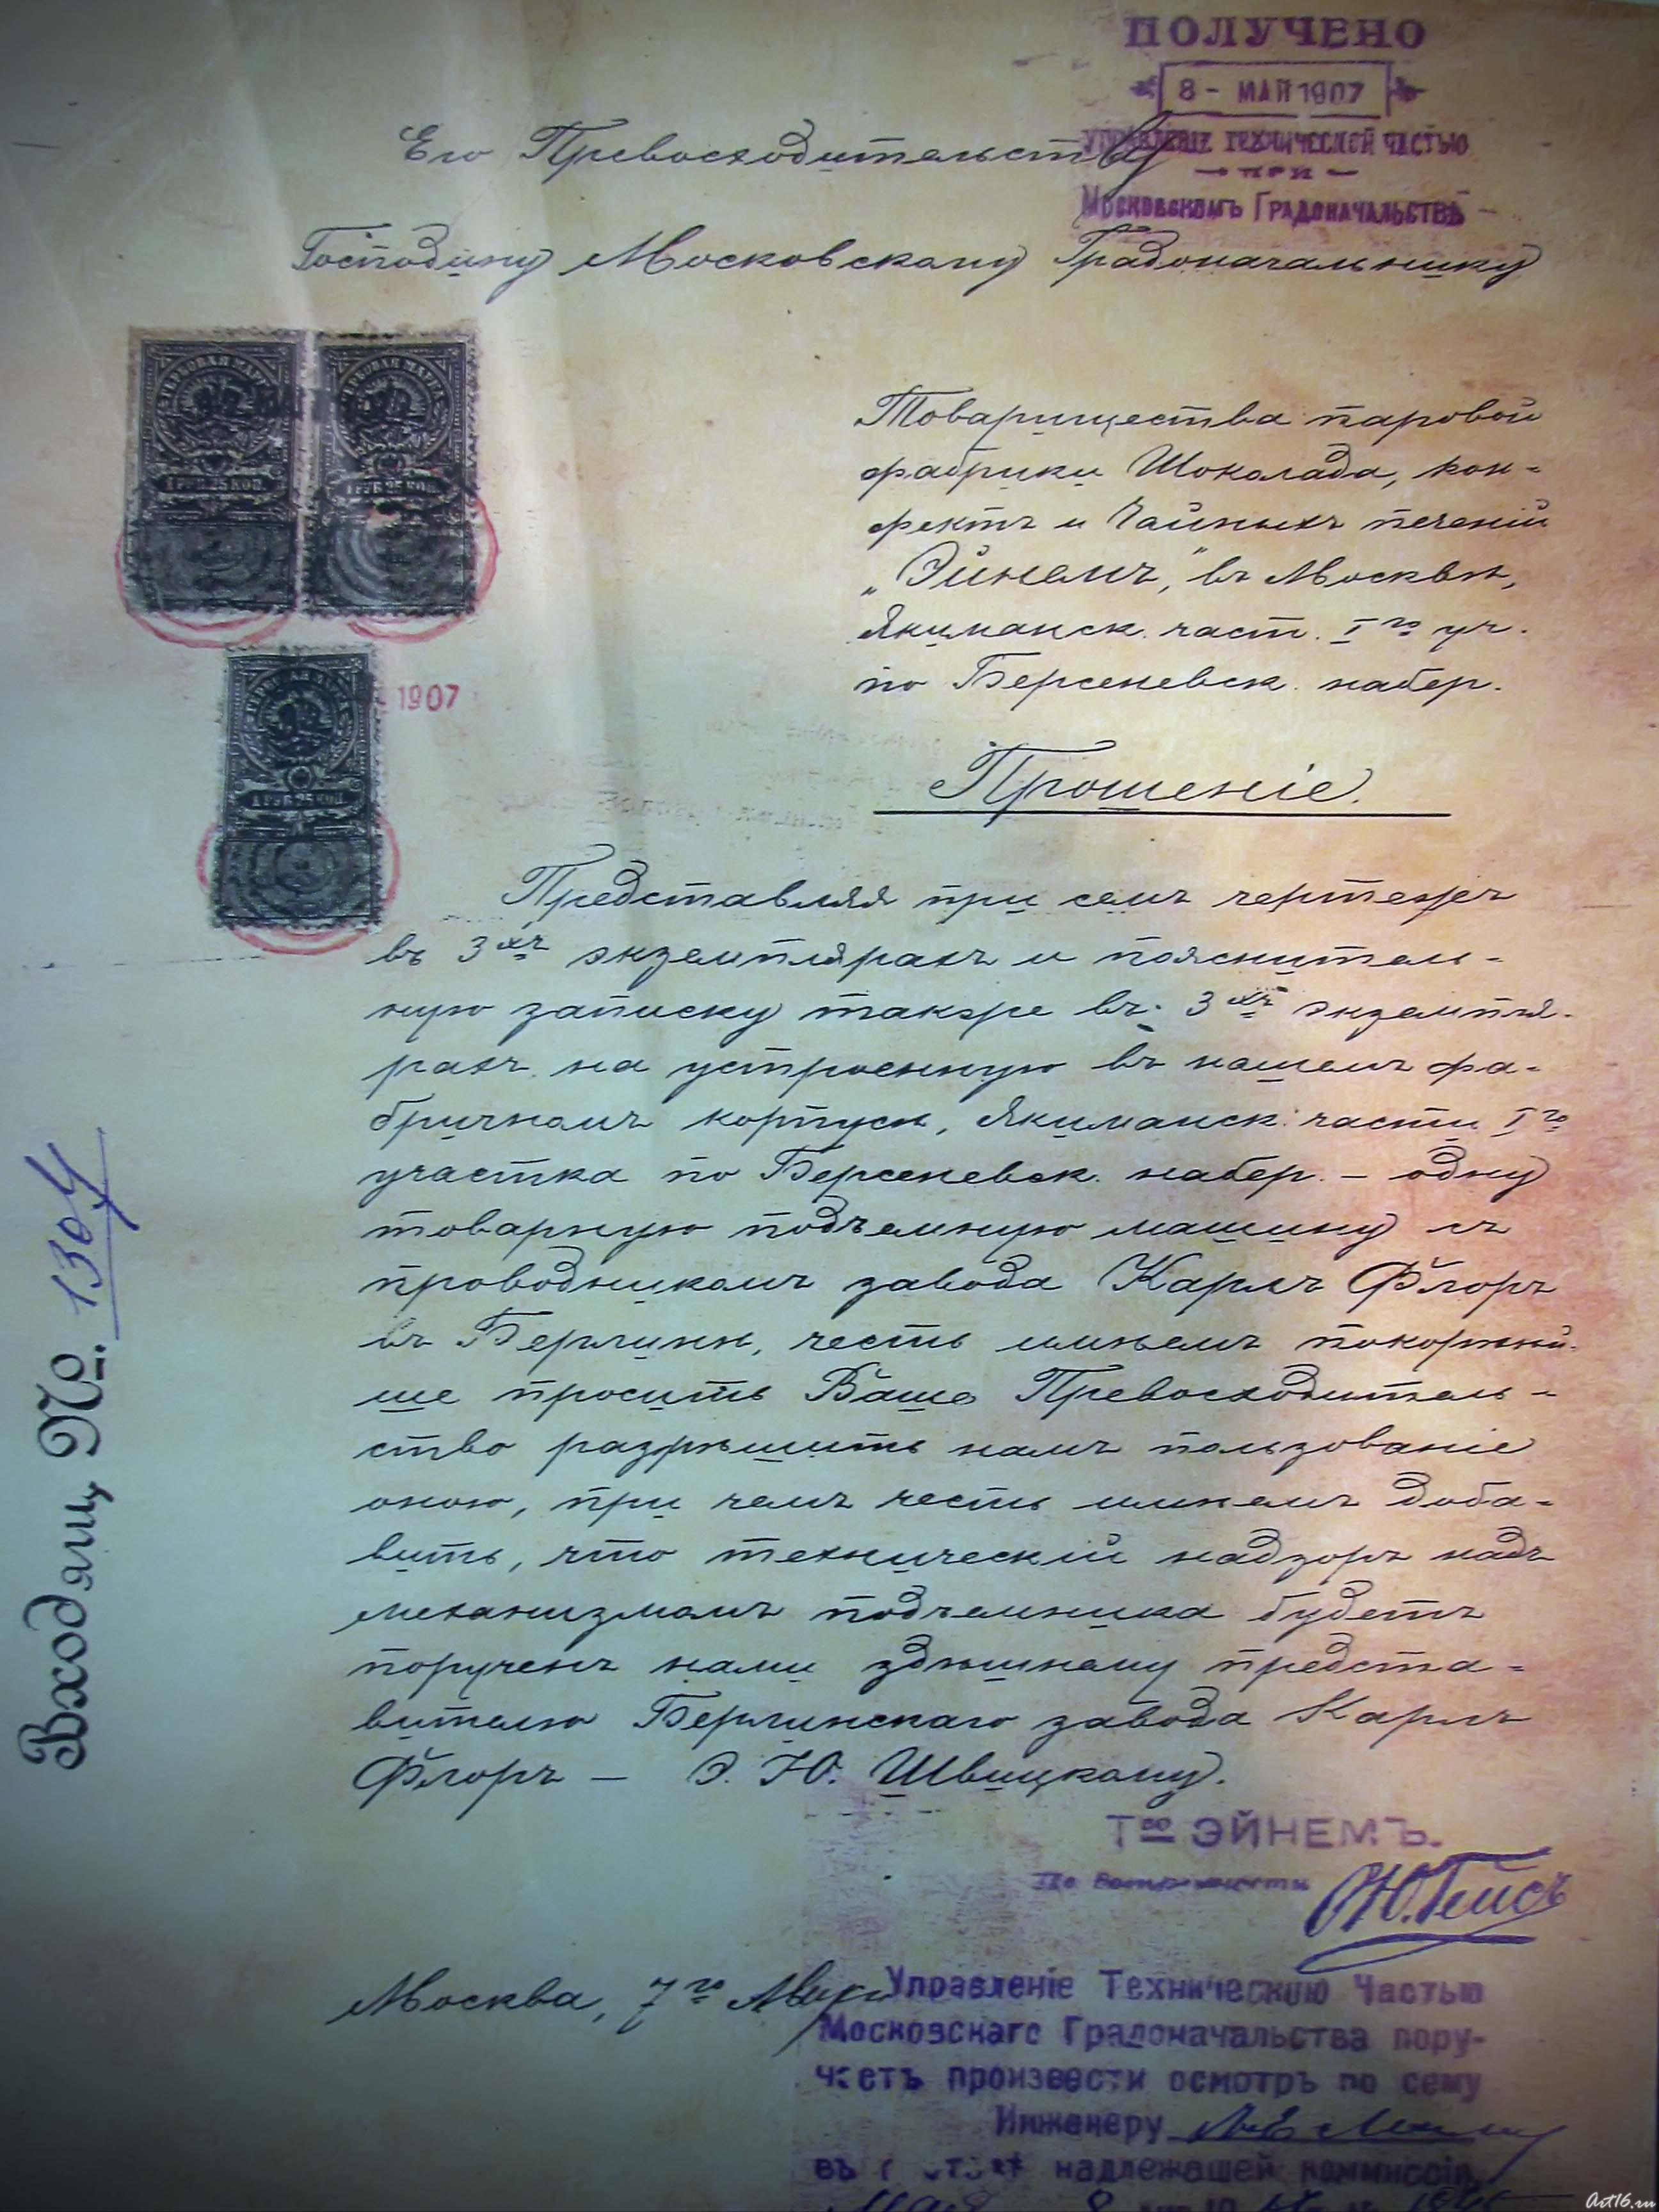 ПОЛУЧЕНО
8 - МАЙ 1907
УПРАВЛЕНІЕ ТЕХНИЧЕСКОЙ ЧАСТЬЮ
ПРИ
МОСКОВСКОМЪ ГРАДОНАЧАЛЬСТВѢ
Его Превосходительству
Господину Московскому Градоначальнику
ГЕРБОВАЯ МАРКА
1 РУБ 25 КОП.
ГЕРБОВАЯ МАРКА
1 РУБ 25 КОП.
1 РУБ 25 КОП.
1907
Товарищества паровой
фабрики Шоколада, кон=
фектъ и Чайныхъ печеній
„Эйнемъ," въ Москвѣ,
Якиманск. част. I го уч.
по Берсеневск. набер.
Прошеніе.
Представляя при семъ чертежъ
въ 3хъ экземплярахъ и пояснитель=
ную записку также въ 3хъ экземпля=
рахъ на устроенную въ нашемъ фа=
бричномъ корпусѣ, Якиманск. части I го
участка по Берсеневск. набер. – одну
товарную подъемную машину съ
проводникомъ завода Карлъ Флоръ
въ Берлинѣ, честь имѣемъ покорнѣй=
ше просить Ваше Превосходитель=
ство разрѣшить намъ пользованіе
оною, при чемъ честь имѣемъ доба=
вить, что техническій надзоръ надъ
механизмомъ подъемника будетъ
порученъ нами здѣшнему предста=
вителю Берлинскаго завода Карлъ
Флоръ – Э. Ю. Швицкому.
Тво ЭЙНЕМЪ.
По довѣренности Ю. Гейсъ
Москва, 7го Мая
Управленіе Техническою Частью
Московскаго Градоначальства пору-
чаетъ произвести осмотръ по сему
Инженеру
въ надлежащей коммиссіи
Входящ. №. 1304
Art16.ru